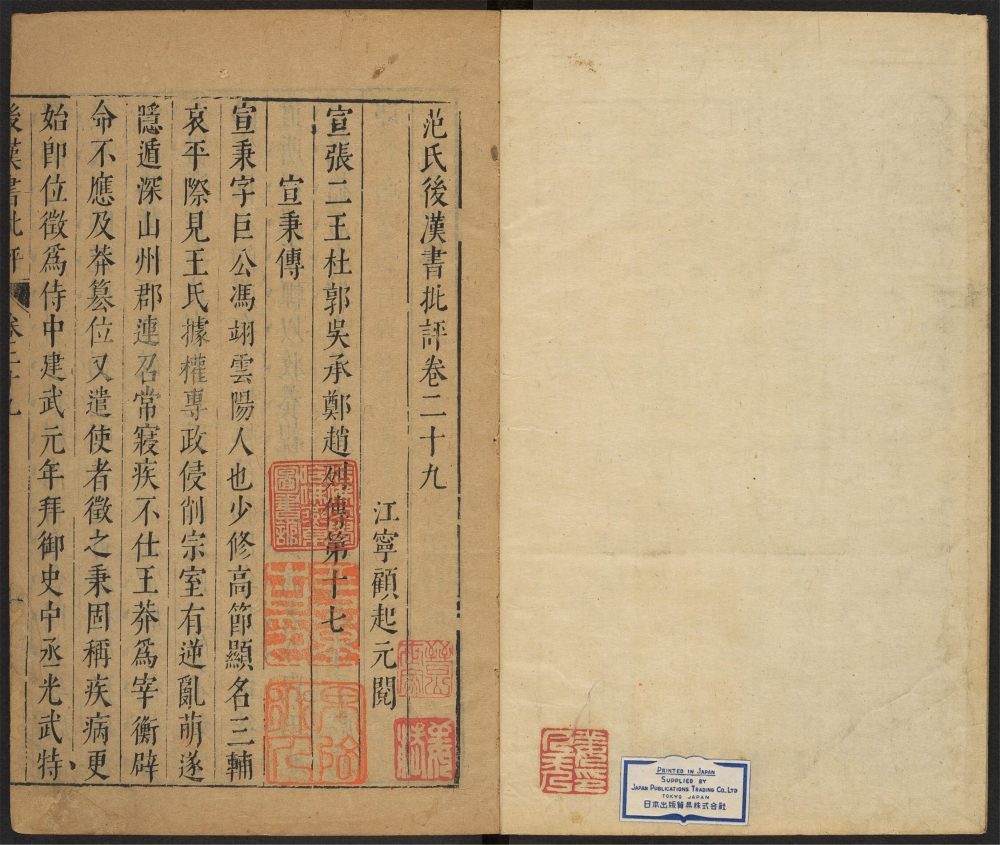 范氏後漢書批評卷二十九
江寧顧起元閱
宣張二王杜郭吳承鄭趙列傳第十七
宣秉傳
宣秉字巨公馮翊雲陽人也少修高節顯名三輔
哀平際見王氏據權專政侵削宗室有逆亂萌遂
隱遁深山州郡連召常寢疾不仕王莽爲宰衡辟
命不應及莽篡位又遣使者徵之秉固稱疾病更
始卽位徵爲侍中建武元年拜御史中丞光武特
後漢書批評 卷二十九
PRINTED IN JAPAN
SUPPLIED BY
JAPAN PUBLICATIONS TRADING CO., LTD
TOKYO JAPAN
日本出版貿易株式会社